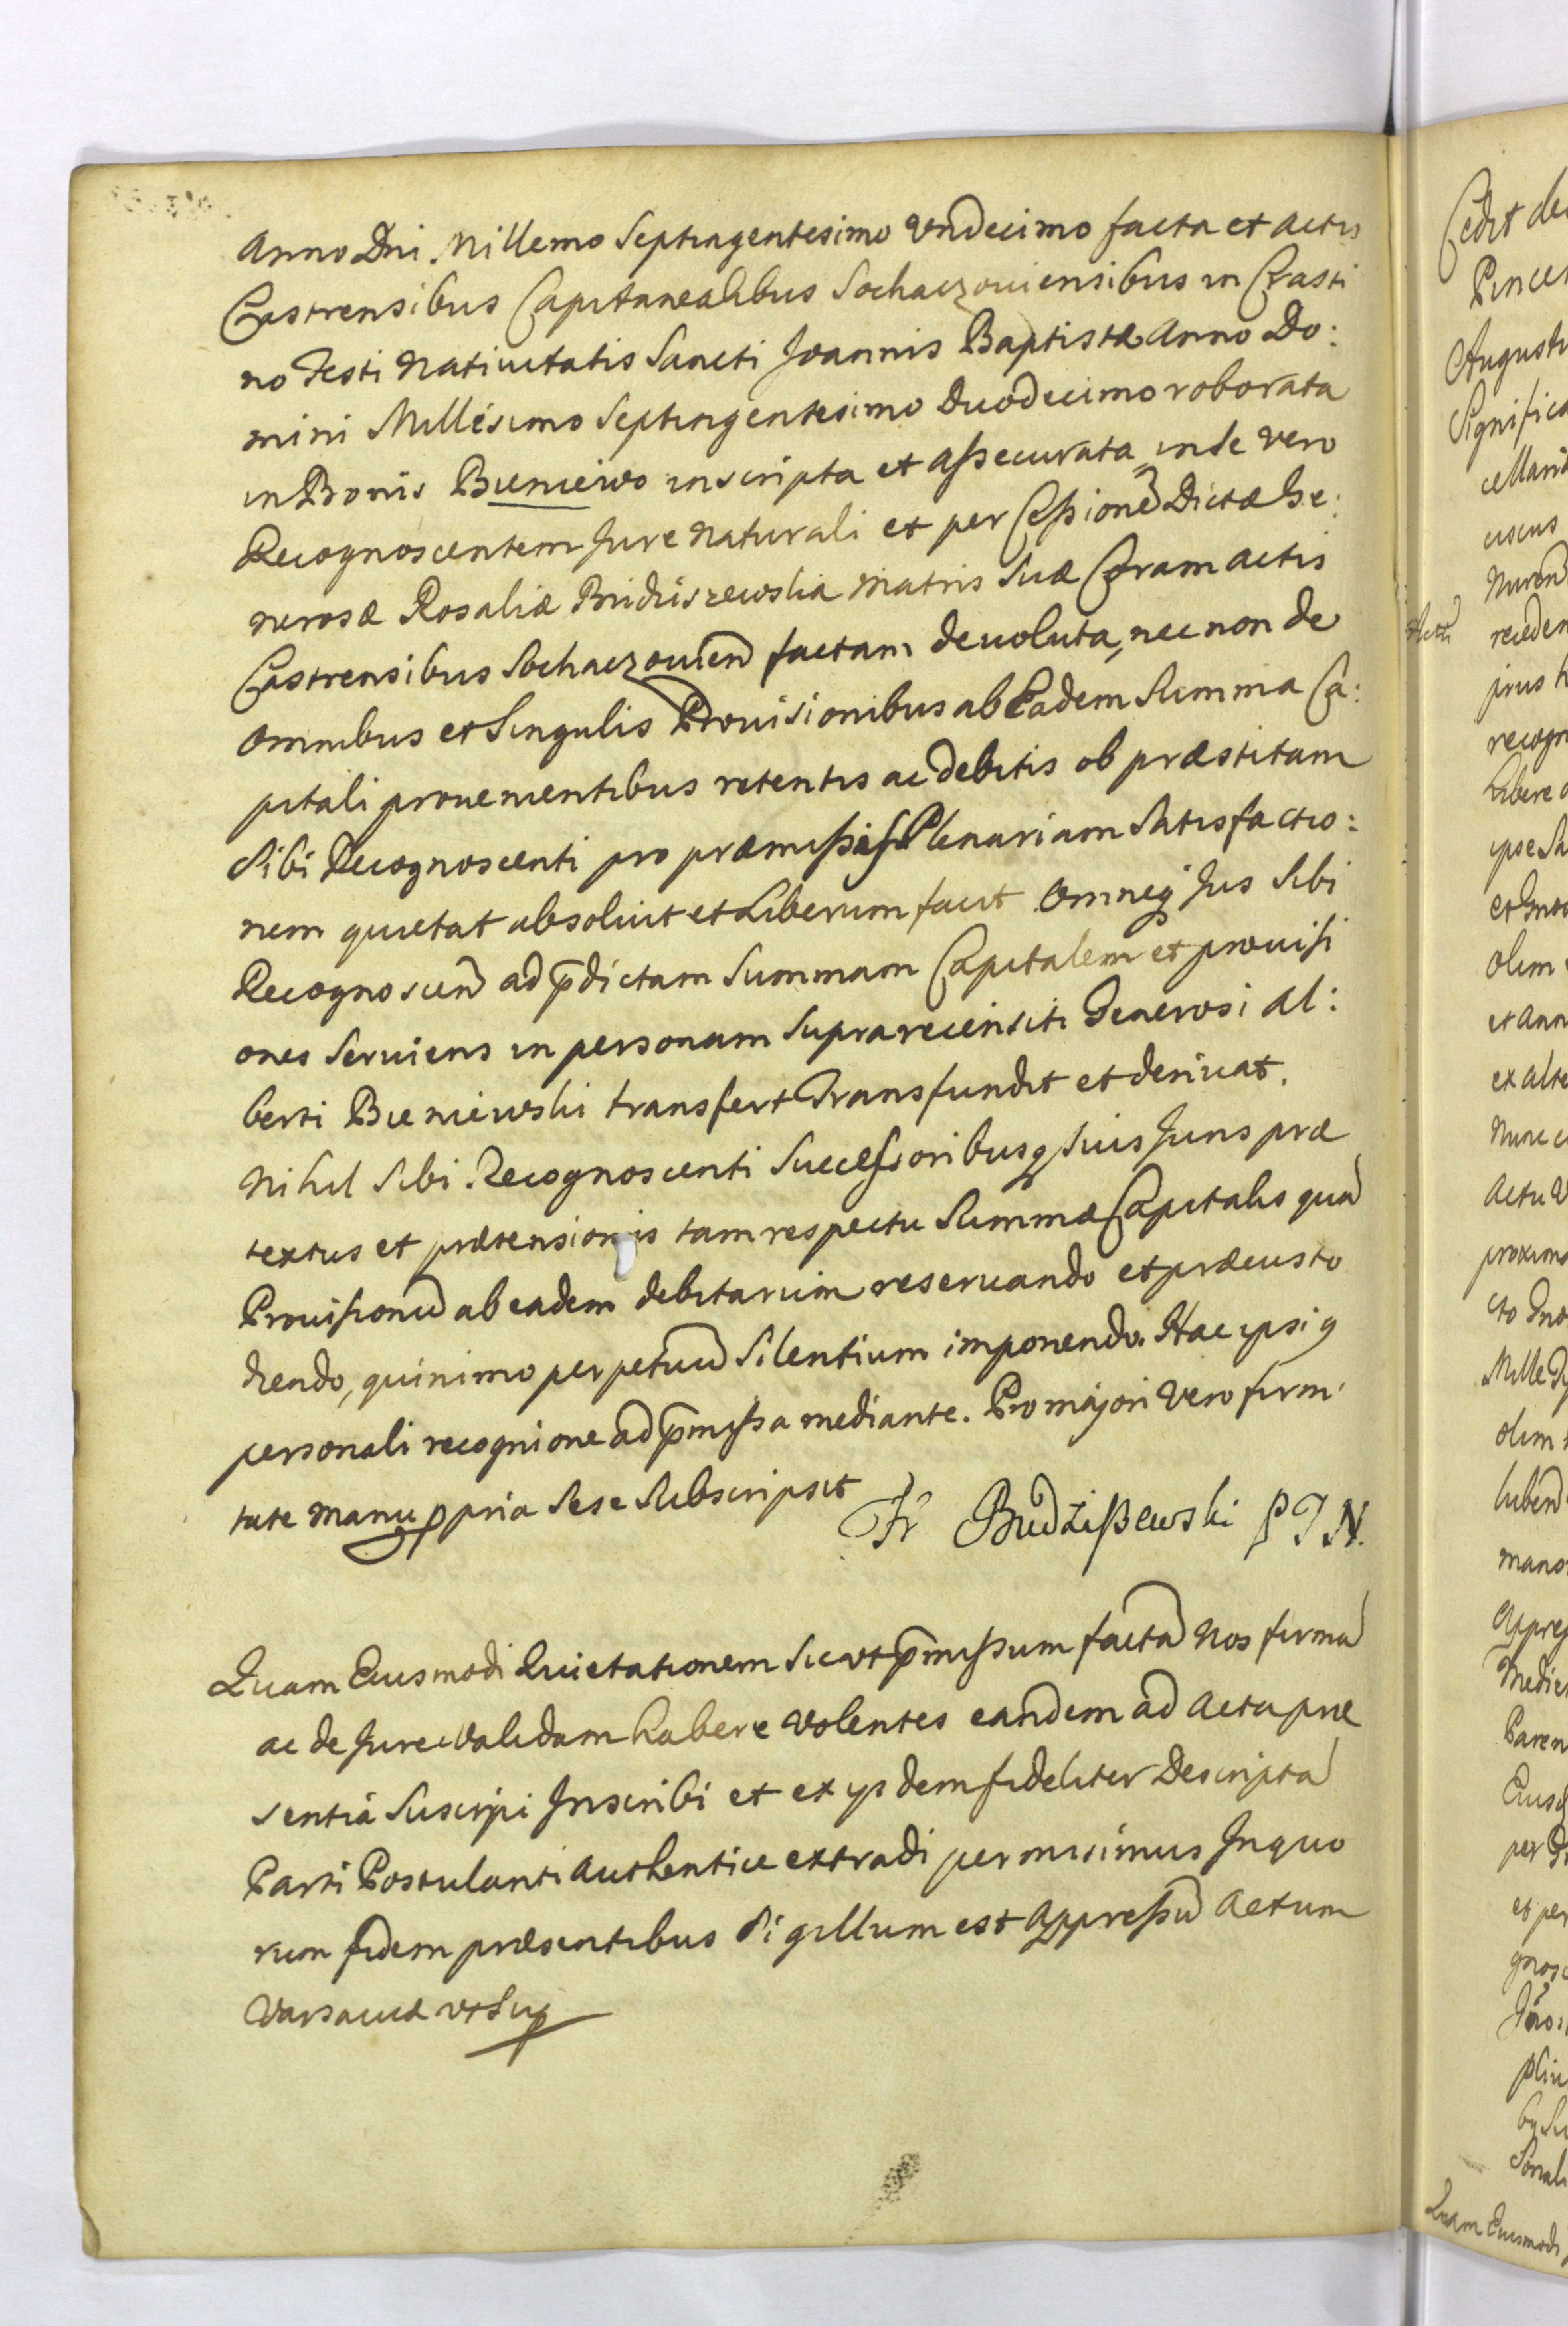 Anno Dni Millemo Septingentesimo Undecimo facta et actis
Castrensibus Capitanealibus Sochaczouiensibus in Crasti
no Festi Natiuitatis Sancti Joannis Baptistæ Anno Do:
mini Millesimo Septingentesimo Duodecimo roborata
in Bonis Bieniewo inscripta et assecurata, in se vero
Recognoscentem Jure Naturali et per Cessionē Dictæ Ge:
nerosæ Rosaliæ Budziszewska Matris Suæ Coram actis
Castrensibus Sochaczouien factam deuoluta, nec non de
omnibus et Singulis Prouisionibus ab Eadem Summa Ca:
pitali prouenientibus retentis ac debitis ob præstitam
Sibi Recognoscenti pro præmissis Plenariam Satisfactio:
nem quietat absoluit et Liberum facit Omneq Jus Sibi
Recognoscen ad p̄dictam Summam Capitalem et prouisi
ones Seruiens in personam Suprarecensiti Generosi Al:
berti Bieniewski transfert Transfundit et deriuat.
Nihil Sibi Recognoscenti Successoribusq Suis Juris præ
textus et prætensionis tam respectu Summæ Capitalis quā
Prouisionū ab eadem debitarum reseruando et præcusto
diendo, quinimo perpetuū Silentium imponendo. Hac ipsiq
personali recognione ad p̄missa mediante. Pro majori Vero firmi
tate manu ppria Sese Subscripsit
Fr Budzißewski P J N.
Quam Eiusmodi Quietationem sic ut p̄missum factā Nos firmā
ac de Jure Validam habere Volentes eandem ad Acta præ
sentia Suscipi Inscribi et ex ijsdem fideliter Descriptā
Parti Postulanti Authentice extradi permisimus In quo
rum fidem præsentibus Sigillum est Appressū Actum
Varsauiæ ut Sup